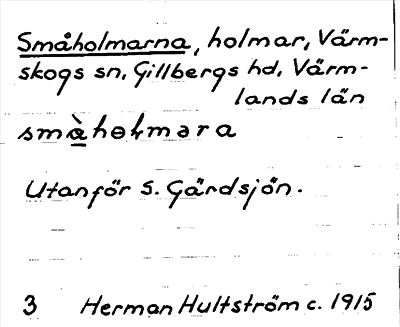 Småholmarna, holmar, Värm-
skogs sn, Gillbergs hd, Värm-
lands län
smàholmara
Utanför S. Gärdsjön.
3 Herman Hultström c. 1915